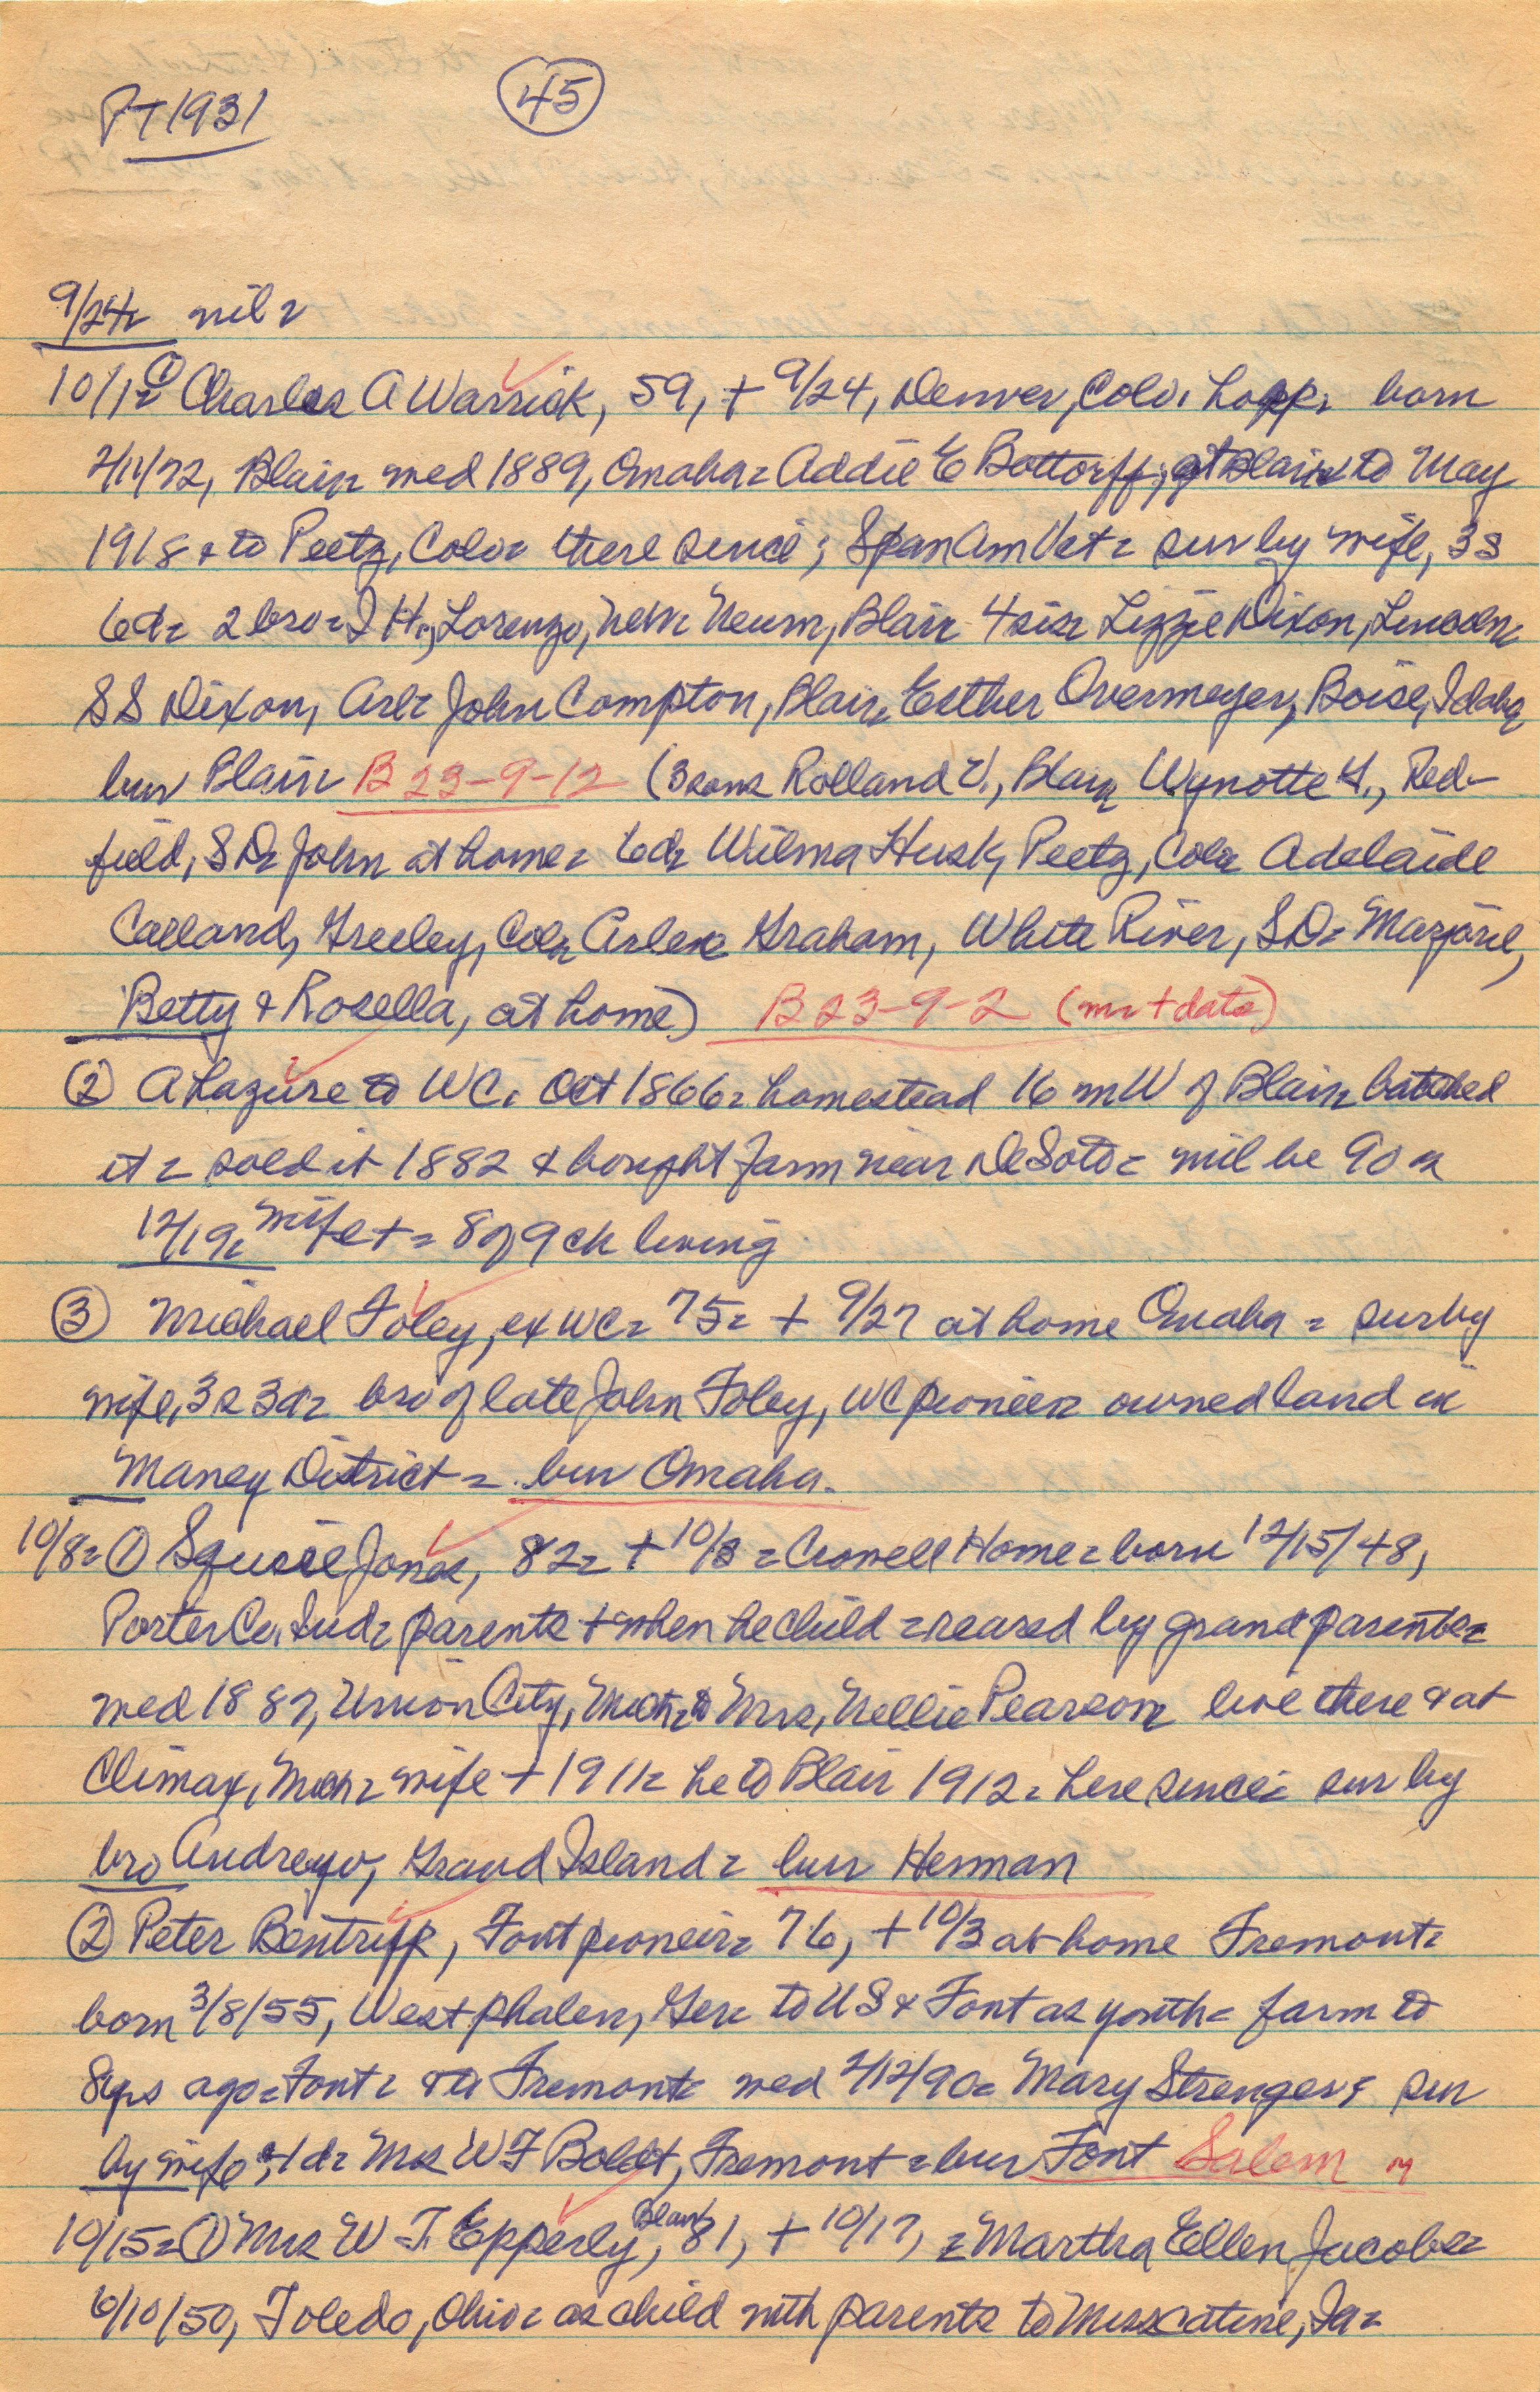 PT 1931
45
9/24= nil=
10/1= ① Charles A Warrick, 59, + 9/24, Denver, Colo. hosp. born
2/11/72, Blair= med 1889, Omaha= Addie E Bottorff; at Blair to May
1918 & to Peetz, Colo= there since; Span Am Vet= sur by wife, 3s
6d= 2 bro= J H., Lorenzo, Blair= 4 sis= Lizzie Dixon, Lincoln=
S S Dixon, Arl= John Compton, Blair, Esther Overmeyer, Boise, Idaho
bur Blair= B 23-9-12 (3 sons Rolland V., Blair, Wynotte H., Red-
field, SD= John at home= 6d= Wilma Husk, Peetz, Colo= Adelaide
Calland, Greeley, Colo= Arlene Graham, White River, SD= Marjorie,
Betty & Rosella, at home) B 23-9-2 (m= + data)
② A Lazure to WC. Oct 1866= homestead 16 m W of Blair= batched
it= sold it 1882 & bought farm near DeSoto= will be 90 on
12/19= wife += 8 of 9 ch living
③ Michael Foley, ex WC= 75= + 9/27 at home Omaha= sur by
wife, 3s 3d= bro of late John Foley, WC pioneer= owned land in
Maney District= bur Omaha.
10/8= ① Squire Jones, 82= + 10/3= Crowell Home= born 12/15/48,
Porter Co. Ind= parents + when he child= reared by grandparents=
med 1887, Union City, Mich= to Mrs, Nellie Pearson= live there & at
Climax, Mich= wife + 1911= he to Blair 1912= here since= sur by
bro Andrew, Grand Island= bur Herman
② Peter Bentrupp, Font pioneer= 76, + 10/3 at home Fremont=
born 3/8/55, Westphalen, Ger= to US & Font as youth= farm to
8 yrs ago= Font= & to Fremont= med 2/12/90= Mary Strenger; sur
by wife & 1d= Mrs W F Boldt, Fremont= bur Font Salem
10/15= ① Mrs W T Epperly, Blair 81, + 10/17, = Martha Ellen Jacobs=
6/10/50, Toledo, Ohio= as child with parents to Muscatine, Ia=